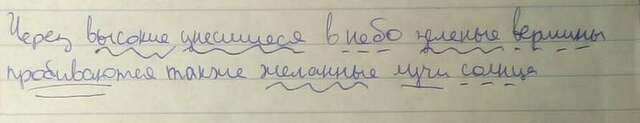 Через высокие унесшиеся в небо зеленые вершины
пробиваются такие желанные лучи солнца